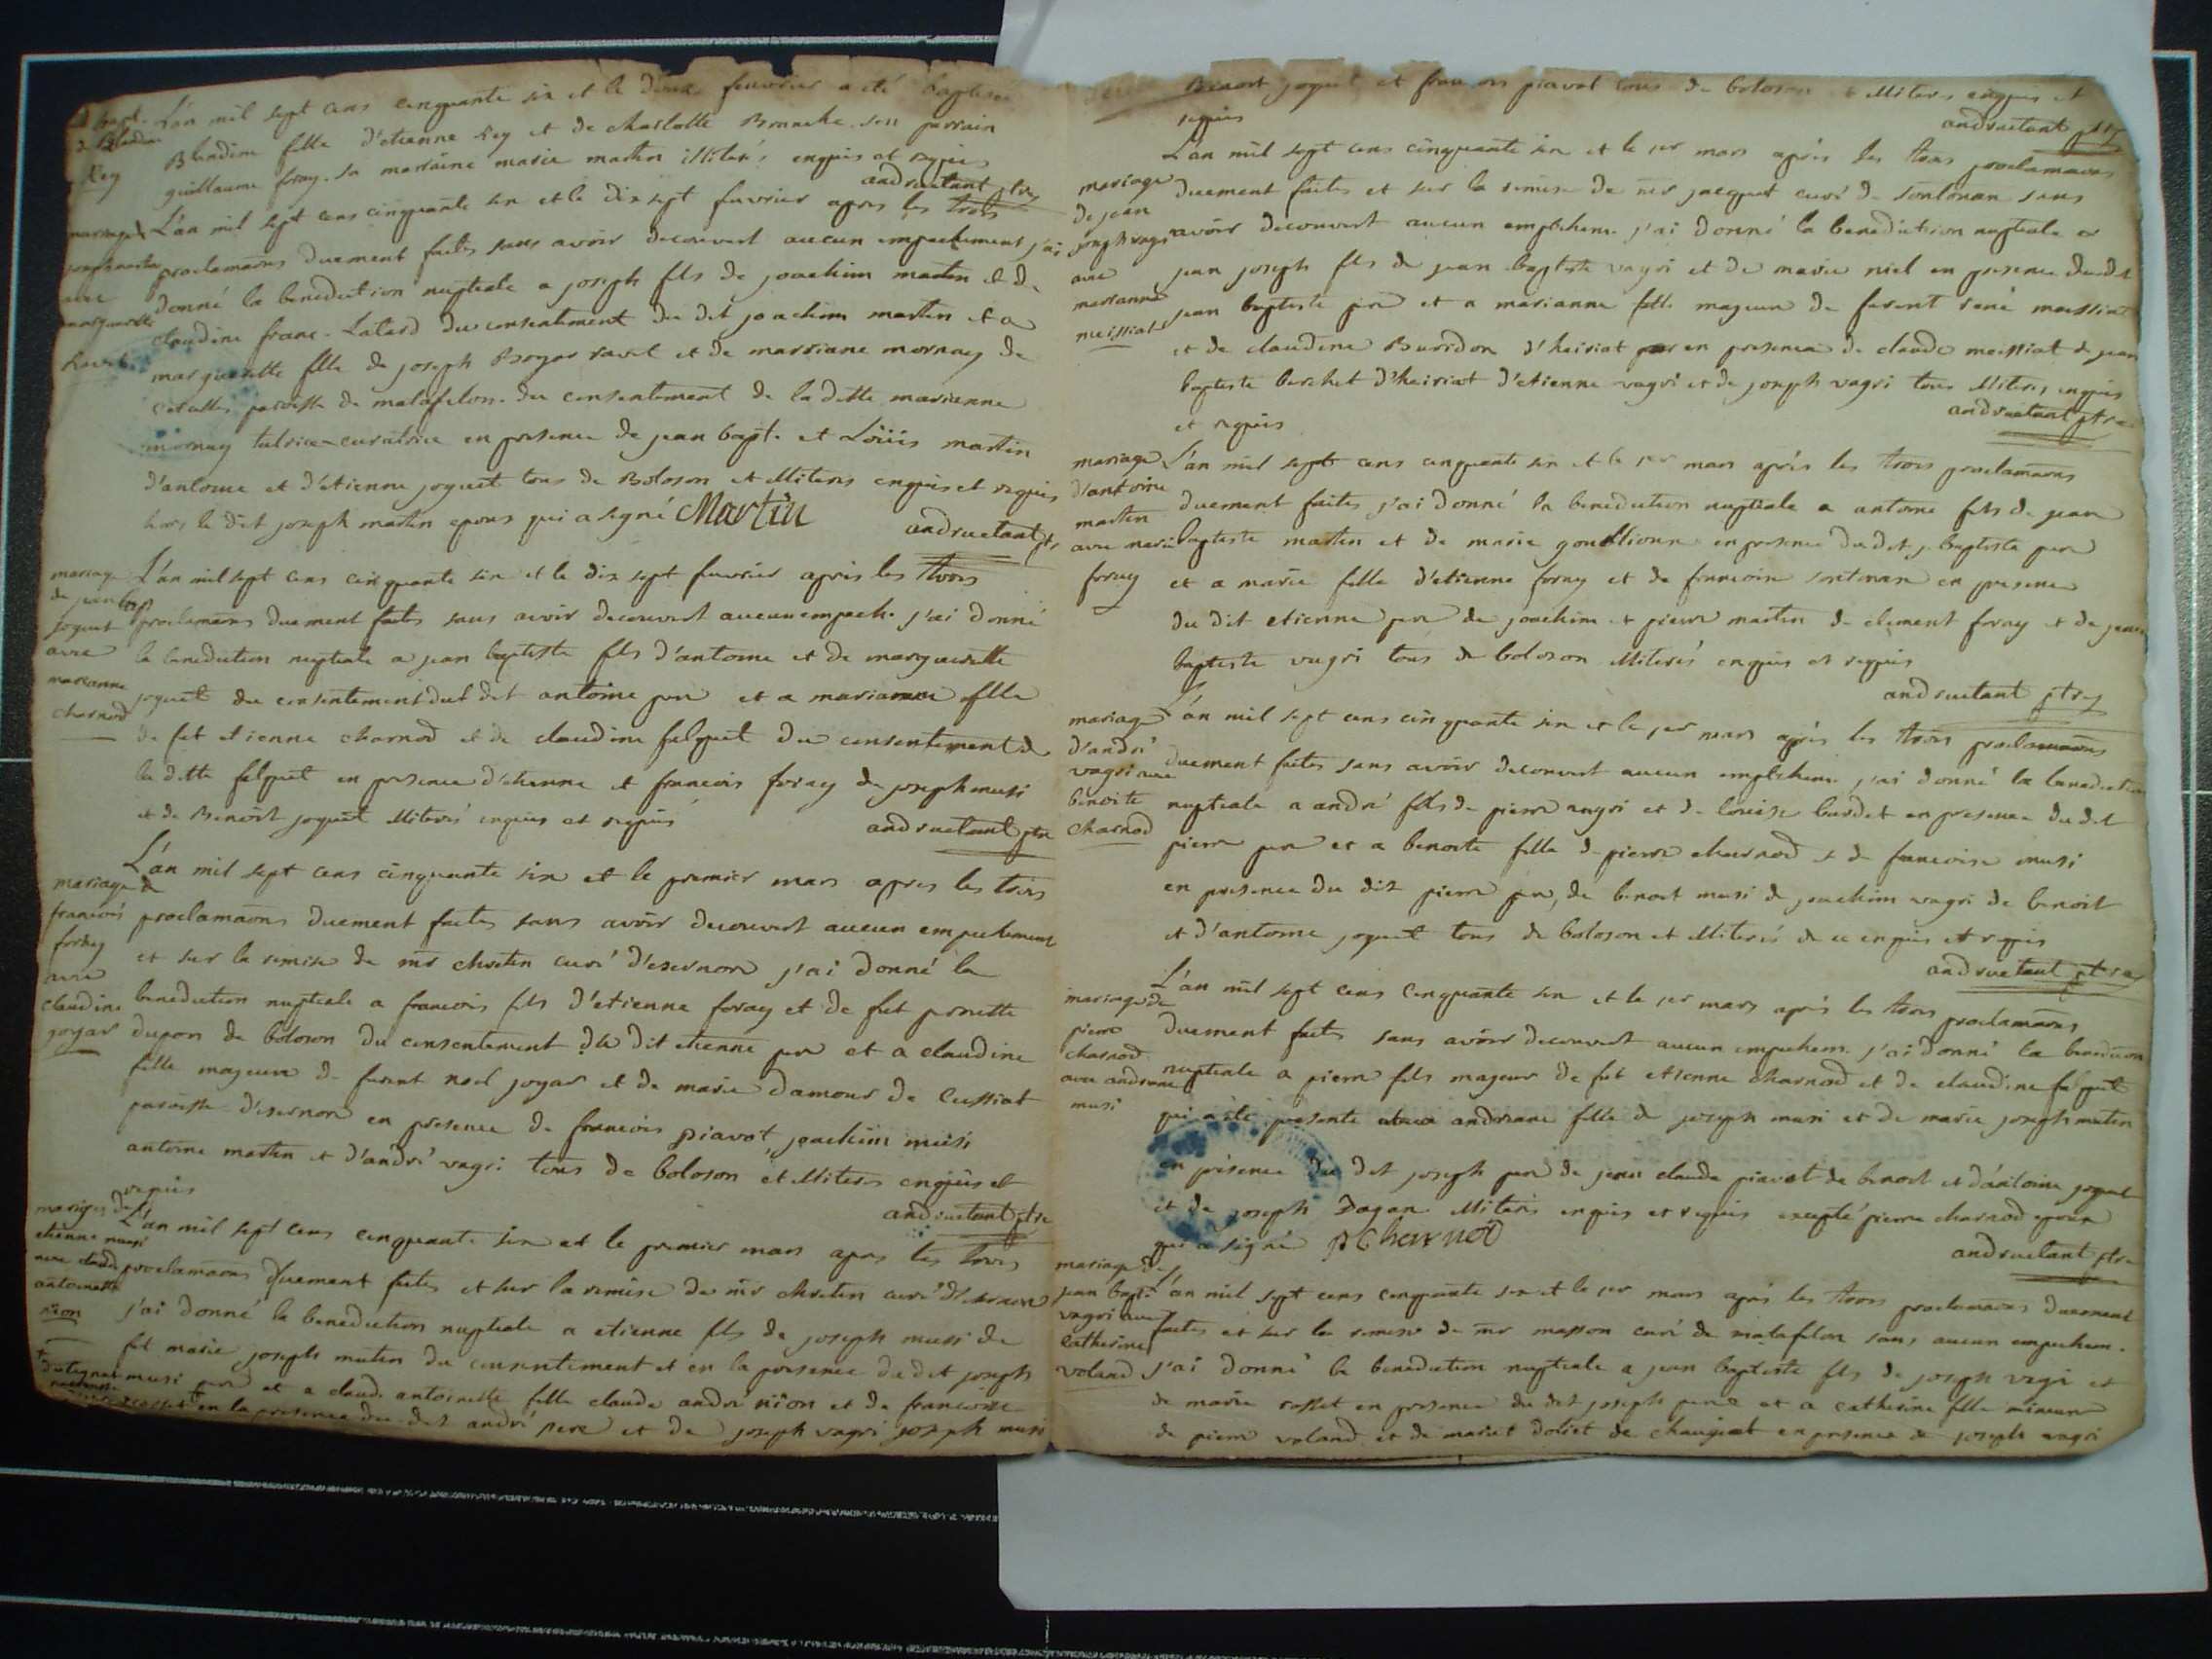 bapt.
de Blandine
Rey
L'an mil sept cens cinquante six et le deux feuvrier a été baptisée
Blandine fille d'etienne Rey et de charlotte Bonnache son parrain
guillaume foray. sa marraine marie martin illiterés enquis et requis
andruetant ptre
mariage de
joseph martin
avec
marguerite
Ravet
L'an mil sept cens cinquante six et le dix sept feuvrier apres les trois
proclamaons duement faites sans avoir decouvert aucun empechement j'ai
donné la benediction nuptiale a joseph fils de joachim martin et de
claudine franc-Latard du consentement du dit joachim martin et a
marguerite fille de joseph Bogar ravet et de marriane mornay de
paroisse de matafelon. du consentement de la ditte marianne
mornay tutrice-curatrice en presence de jean bapt. et Loüis martin
d'antoine et d'etienne joguet tous de Boloson et illiterés enquis et requis
hors le dit joseph martin epoux qui a signé Martin
andruetant ptr
mariage
de jean bapt
joguet
avec
marianne
charnod
L'an mil sept cens cinquante six et le dix sept feuvrier après les trois
proclamaons duement faites sans avoir decouvert aucun empech. j'ai donné
la benediction nuptiale a jean baptiste fils d'antoine et de marguerite
joguet du consentement dud dit antoine pere et a marianne fille
de fut etienne charnod et de claudine falquet du consentement de
la ditte falquet en presence d'etienne et francois foray de joseph musi
et de Benoît joguet illiterés enquis et requis
andruetant ptre
mariage de
francois
foray
avec
claudine
goyar
L'an mil sept cens cinquante six et le premier mars apres les trois
proclamaons duement faites sans avoir decouvert aucun empechement
et sur la remise de mr chretin curé d'esernore j'ai donné la
benediction nuptiale a francois fils d'etienne foray et de fut perrette
dupon de boloson du consentement du dit etienne pere et a claudine
fille mageure de furent noel joyar et de marie damour de Cussiat
paroisse d'isernore en presence de francois piavot, joachim musi
antoine martin et d'andré vagri tous de boloson et illiterés enquis et
requis
andruetant ptre
mariage de
etienne musi
avec claude
antoinette
nion
L'an mil sept cens cinquante six et le premier mars apres les trois
proclamaons duement faites et sur la remise de mr chretin curé d'isernore
j'ai donné la benediction nuptiale a etienne fils de joseph musi de
fut marie joseph mutin du consentement et en la presence dudit joseph
musi pere et a claud. antoinette fille claude andré nïon et de francoise
en la presence du dit andré pere et de joseph vagri joseph musi
Benoit joguet et francois piavot tous de boloson illiterés enquis et
requis
andruetant ptre
mariage
de jean
joseph vagri
avec
marianne
meissiat
L'an mil sept cens cinquante six et le 1er mars après les trois proclamaons
duement faites et sur la remise de mr jacquet curé de sontonax sans
avoir decouvert aucun empechem. j'ai donné la benediction nuptiale a
jean joseph fils de jean baptiste vagri et de marie niel en presence dudit
jean baptiste pere et a marianne fille mageure de furent rené meissiat
et de claudine Buridon d'heiriat en presence de claude meissiat de jean
baptiste berchet d'heiriat d'etienne vagri et de joseph vagri tous illiterés enquis
et requis
andruetant ptre
mariage
d'antoine
martin
avec marie
foray
L'an mil sept cens cinquante six et le 1er mars après les trois proclamaons
duement faites j'ai donné la benediction nuptiale a antoine fils de jean
baptiste martin et de marie en presence dudit j. baptiste pere
et a marie fille d'etienne foray et de francoise sontonax en presence
du dit etienne pere de joachim et pierre martin de clement foray et de jean
baptiste vagri tous de boloson illiterés enquis et requis
andruetant ptre
mariage
d'andré
vagri avec
benoite
charnod
L'an mil sept cens cinquante six et le 1er mars après les trois proclamaons
duement faites sans avoir decouvert aucun empechem. j'ai donné la benediction
nuptiale a andré fils de pierre vagri et de louise burdet en presence du dit
pierre pere et a benoite fille de pierre charnod et de francoise musi
en presence du dit pierre pere, de benoit musi de joachim vagri de benoit
et d'antoine joguet tous de boloson et illiterés de ce enquis et requis
andruetant ptre
mariage de
pierre
charnod
avec andreane
musi
L'an mil sept cens cinquante six et le 1er mars après les trois proclamaons
duement faites sans avoir decouvert aucun empechem. j'ai donné la benediction
nuptiale a pierre fils majeur de fut etienne charnod et de claudine falquet
qui a été presente andreane fille de joseph musi et de marie joseph mutin
en présence du dit joseph pere de jean claude piavot de benoit et d'antoine joguet
et de joseph Dagan illiterés enquis et requis excepté pierre charnod epoux
qui a signé p Charnod
andruetant ptre
mariage de
jean bapt.
vagri avec
catherine
voland
L'an mil sept cens cinquante six et le 1er mars après les trois proclamaons duement
faites et sur la remise de mr masson curé de matafelon sans aucun empechem.
j'ai donné la benediction nuptiale a jean baptiste fils de joseph vagri et
de marie rosset en presence du dit joseph pere et a catherine fille mineure
de pierre voland et de mariet doliet de changeat en presence de joseph vagri